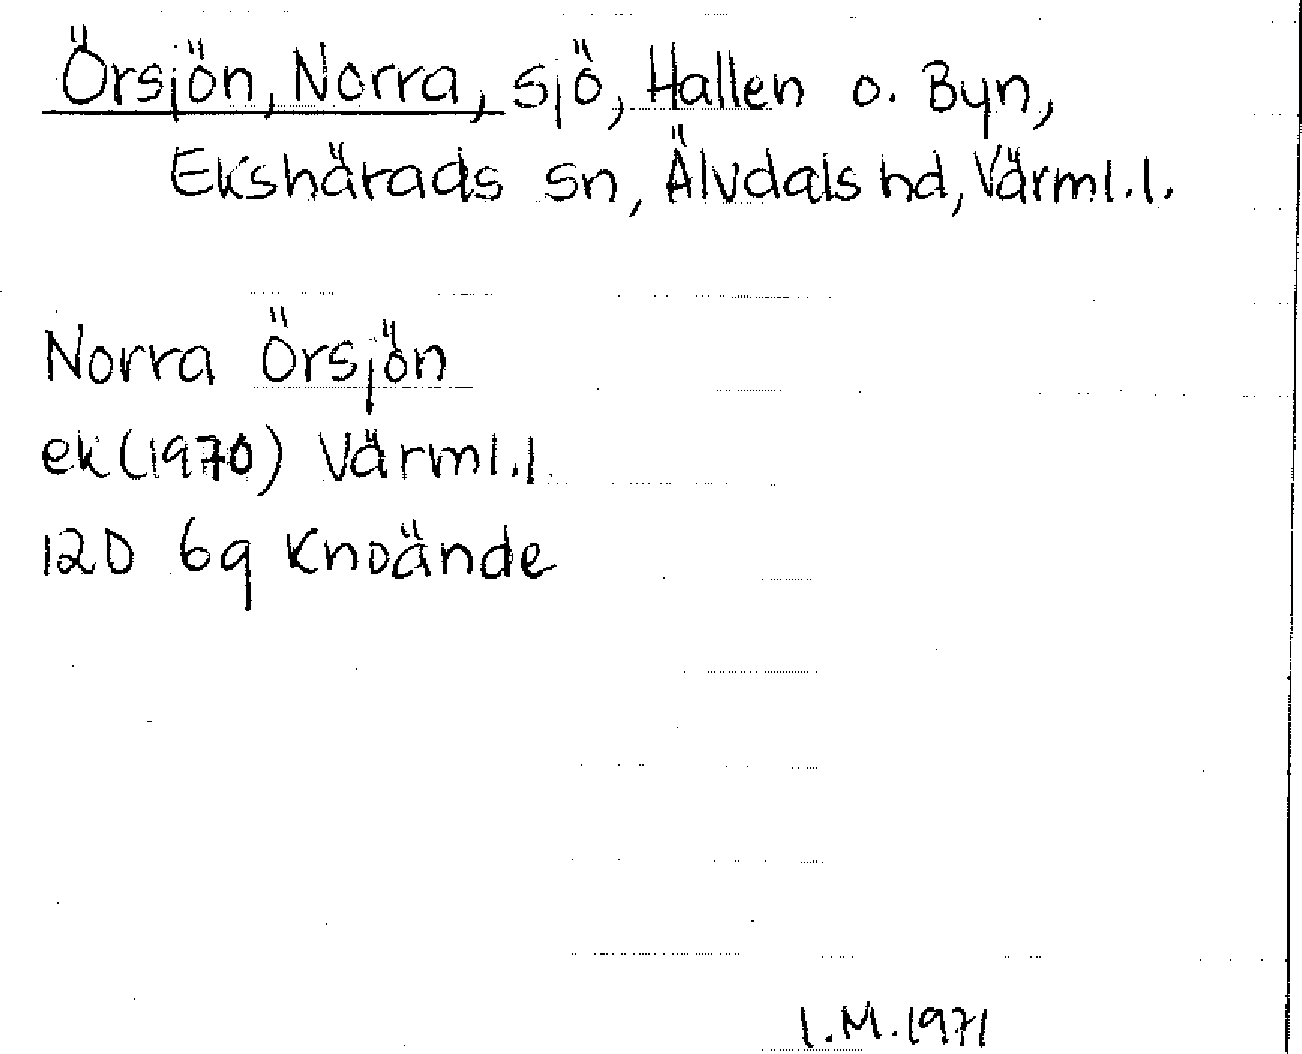 Örsjön, Norra, sjö, Hallen o. Byn,
Ekshärads sn, Älvdals hd, Värml.l.
Norra Örsjön
ek(1970) Värml.l.
12D 6g Knoände
I.M.1971